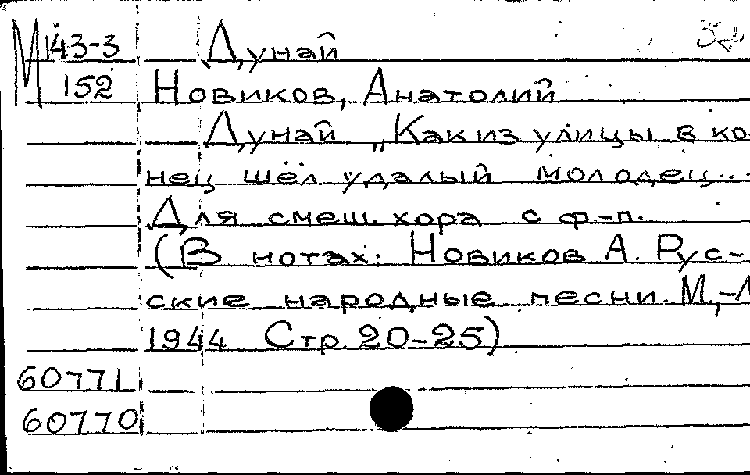 М 143-3 Дунай
152 Новиков, Анатолий
Дунай „Как из улицы в ко-
нец шёл удалый молодец...
Для смеш. хора с ф-п.
(В нотах: Новиков А. Рус-
ские народные песни. М,-Л
1944 Стр. 20-25)
60771
60770